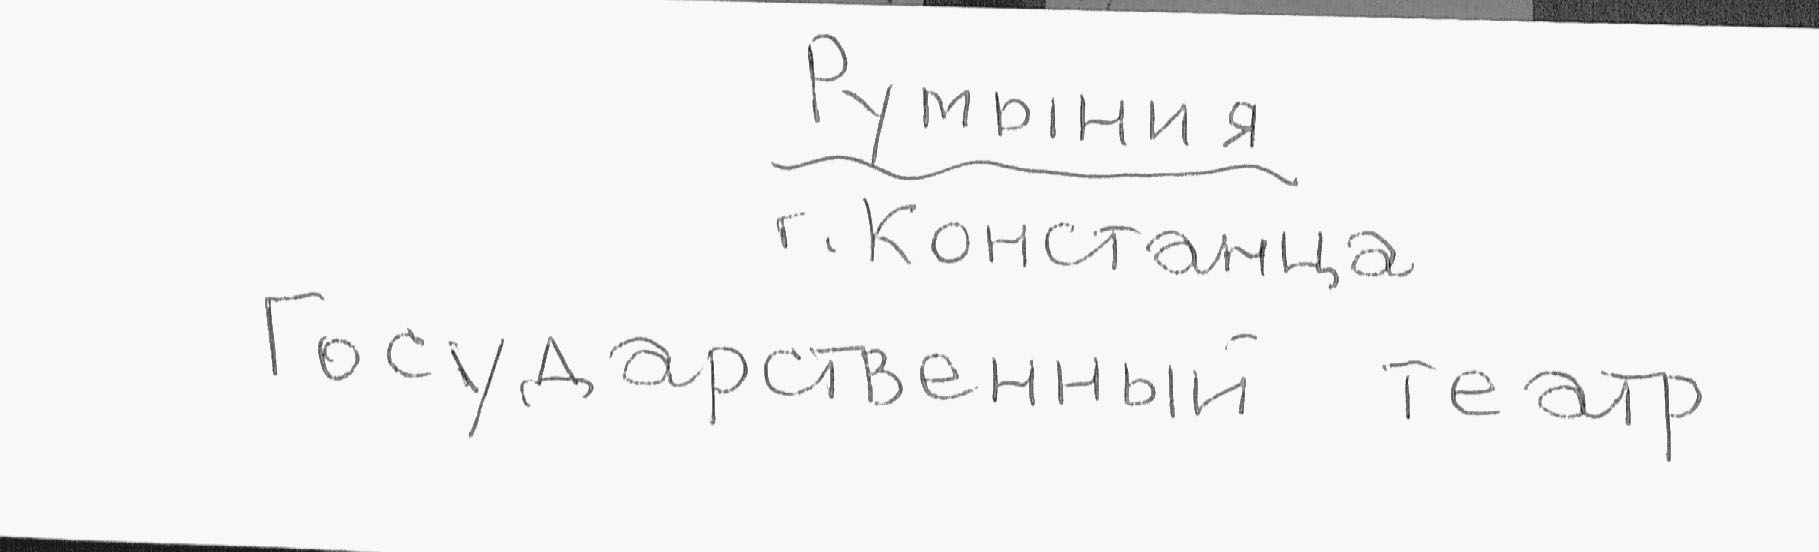 Румыния
г. Констанца
Государственный театр